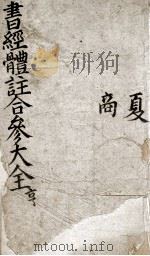 書經體註合參大全亨
夏
商
mtoou.info